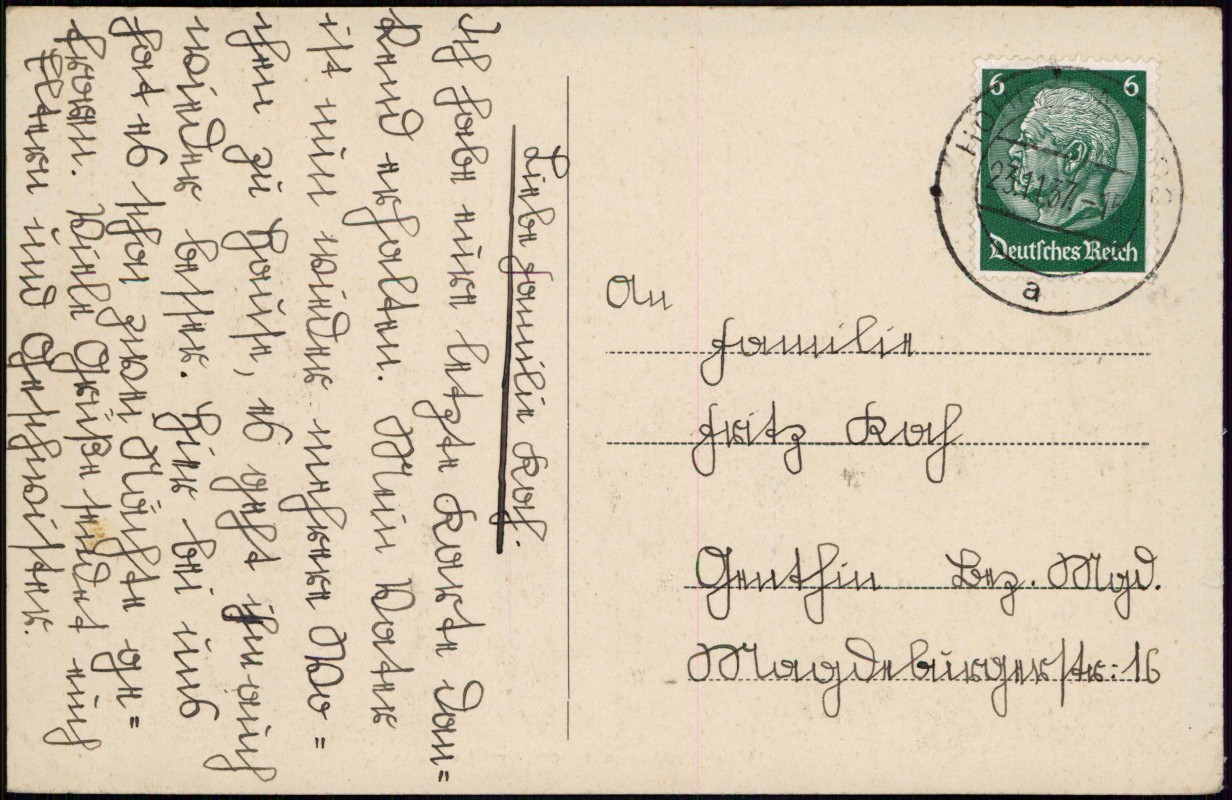 Liebe Familie Koch.
Ich habe eure letzte Karte dan=
kend erhalten. Mein Vater
ist nun wieder mehrere Wo=
chen zu Hause, es geht ihm auch
wieder besser. Hier bei uns
hat es schon zwei Nächte ge=
froren. Viele Grüße sendet euch
Eltern und Geschwister.
6 6
23.11.37.
Deutsches Reich
a
An
Familie
Fritz Koch
Genthin Bez. Mgd.
Magdeburgerstr: 16